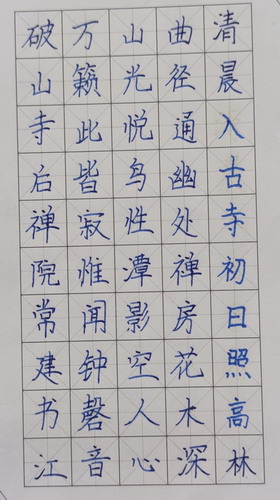 清晨入古寺初日照高林
曲径通幽处禅房花木深
山光悦鸟性潭影空人心
万籁此皆寂惟闻钟磬音
破山寺后禅院常建书江